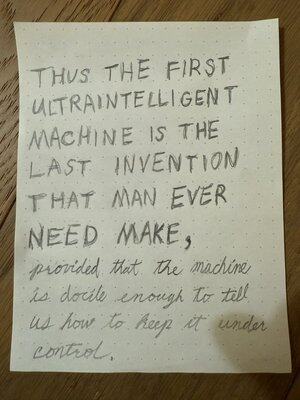 THUS THE FIRST
ULTRAINTELLIGENT
MACHINE IS THE
LAST INVENTION
THAT MAN EVER
NEED MAKE,
provided that the machine
is docile enough to tell
us how to keep it under
control.